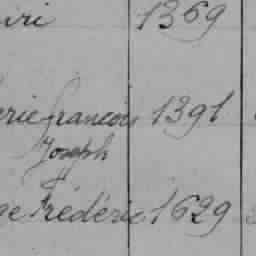 1369
francois 1391
Joseph
Frédéric 1629